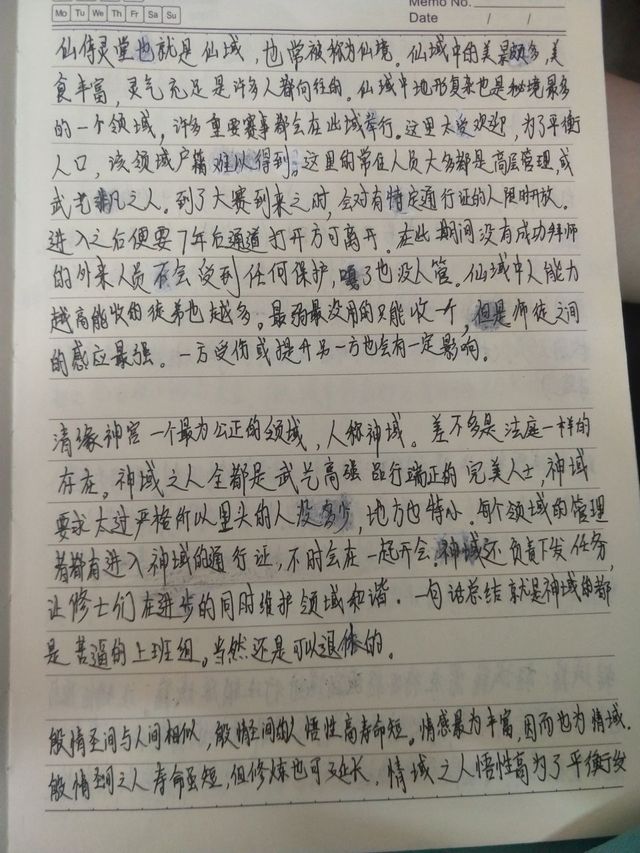 Memo No.
Mo Tu We Th Fr Sa Su
Date / /
仙侍灵堂也就是仙域，也常被称为仙境。仙域中的美景颇多，美
食丰富，灵气充足是许多人都向往的。仙域中地形复杂也是秘境最多
的一个领域，许多重要赛事都会在此域举行。这里太受欢迎，为了平衡
人口，该领域户籍难以得到。这里的常住人员大多都是高层管理，或
武艺非凡之人。到了大赛到来之时，会对有特定通行证的人限时开放。
进入之后便要7年后通道打开方可离开。在此期间没有成功拜师
的外来人员不会受到任何保护，嘎了也没人管。仙域中人能力
越高能收的徒弟也越多。最弱最没用的只能收一个，但是师徒之间
的感应最强。一方受伤或提升另一方也会有一定影响。
清缘神宫一个最为公正的领域，人称神域。差不多是法庭一样的
存在。神域之人全都是武艺高强品行端正的完美人士，神域
要求太过严格所以里头的人没多少，地方也特小。每个领域的管理
者都有进入神域的通行证，不时会在一起开会。神域还负责下发任务，
让修士们在进步的同时维护领域和谐。一句话总结就是神域的都
是苦逼的上班组。当然还是可以退休的。
般情圣间与人间相似，般情圣间的人悟性高寿命短。情感最为丰富，因而也为情域.
般情圣间之人寿命虽短，但修炼也可延长，情域之人悟性高为了平衡